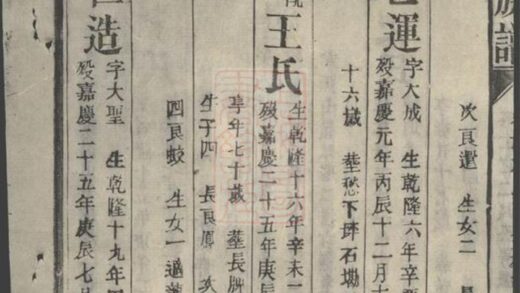 族譜
次良選 生女二 長
運 字大成 生乾隆六年辛
歿嘉慶元年丙辰十二月
十六歲 葬愁下
石
王氏 生乾隆十六年辛未
歿嘉慶二十五年庚辰
享年七十歲 葬長
生子四 長良鳳 次
四良蛟 生女一 適
造 字大聖 生乾隆十九年
歿嘉慶二十五年庚辰七